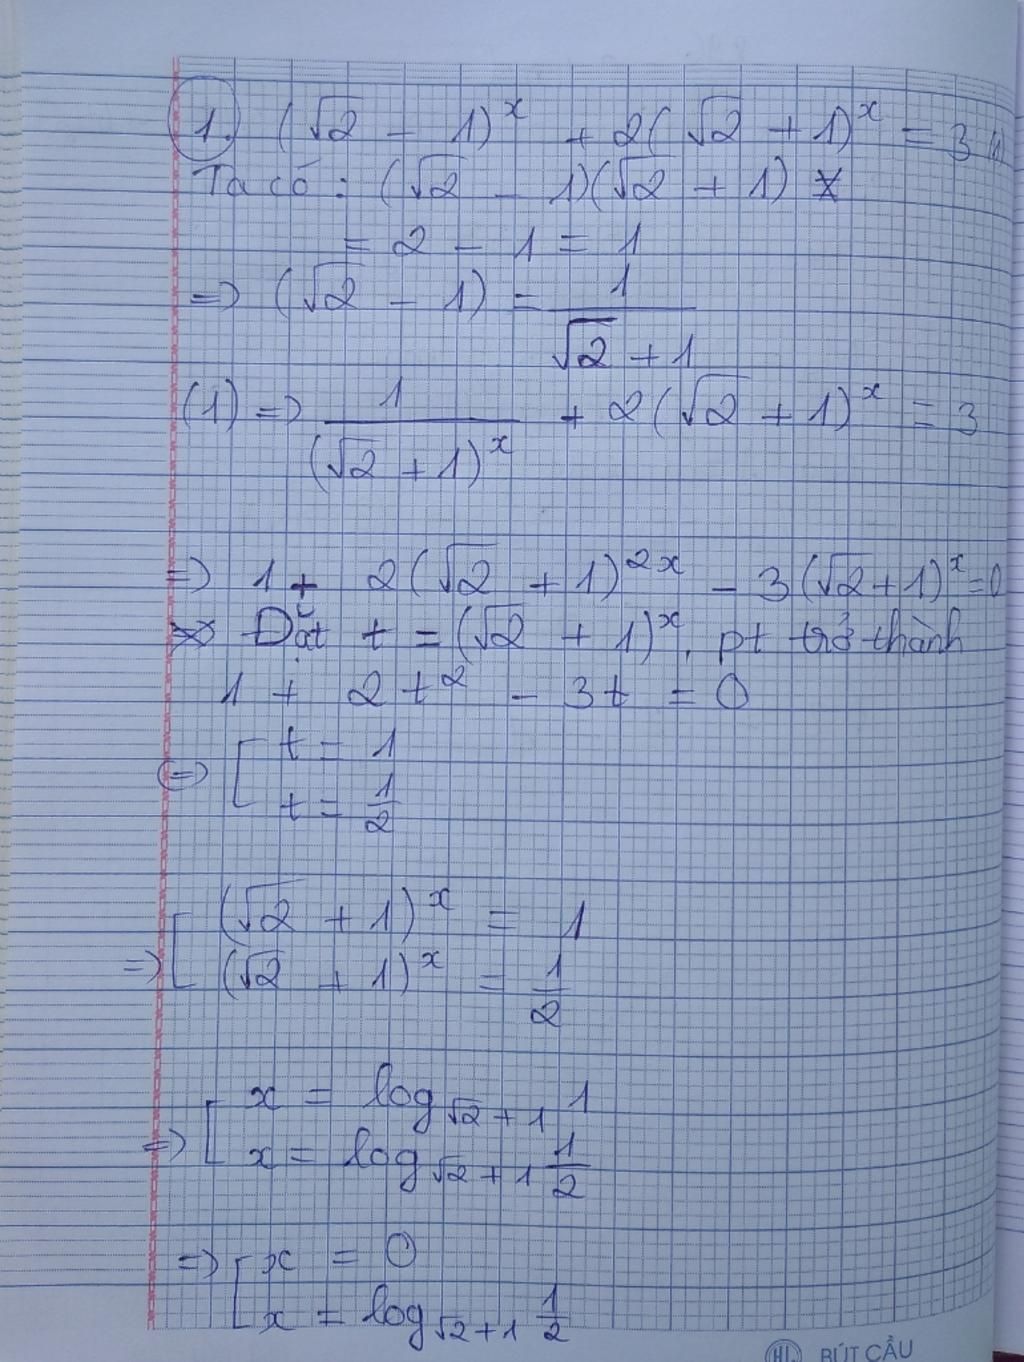 1. (√2 - 1)^x + 2(√2 + 1)^x = 3 (1)
Ta có : (√2 - 1)(√2 + 1)
= 2 - 1 = 1
=> (√2 - 1) = 1/(√2 + 1)
(1) => 1/(√2 + 1)^x + 2(√2 + 1)^x = 3
=> 1 + 2(√2 + 1)^2x - 3(√2+1)^x = 0
Đặt t = (√2 + 1)^x, pt trở thành
1 + 2t^2 - 3t = 0
<=> [ t = 1
t = 1/2
=> [ (√2 + 1)^x = 1
(√2 + 1)^x = 1/2
=> [ x = log_√2+1 1
x = log_√2+1 1/2
=> [ x = 0
x = log_√2+1 1/2
HL BÚT CẦU